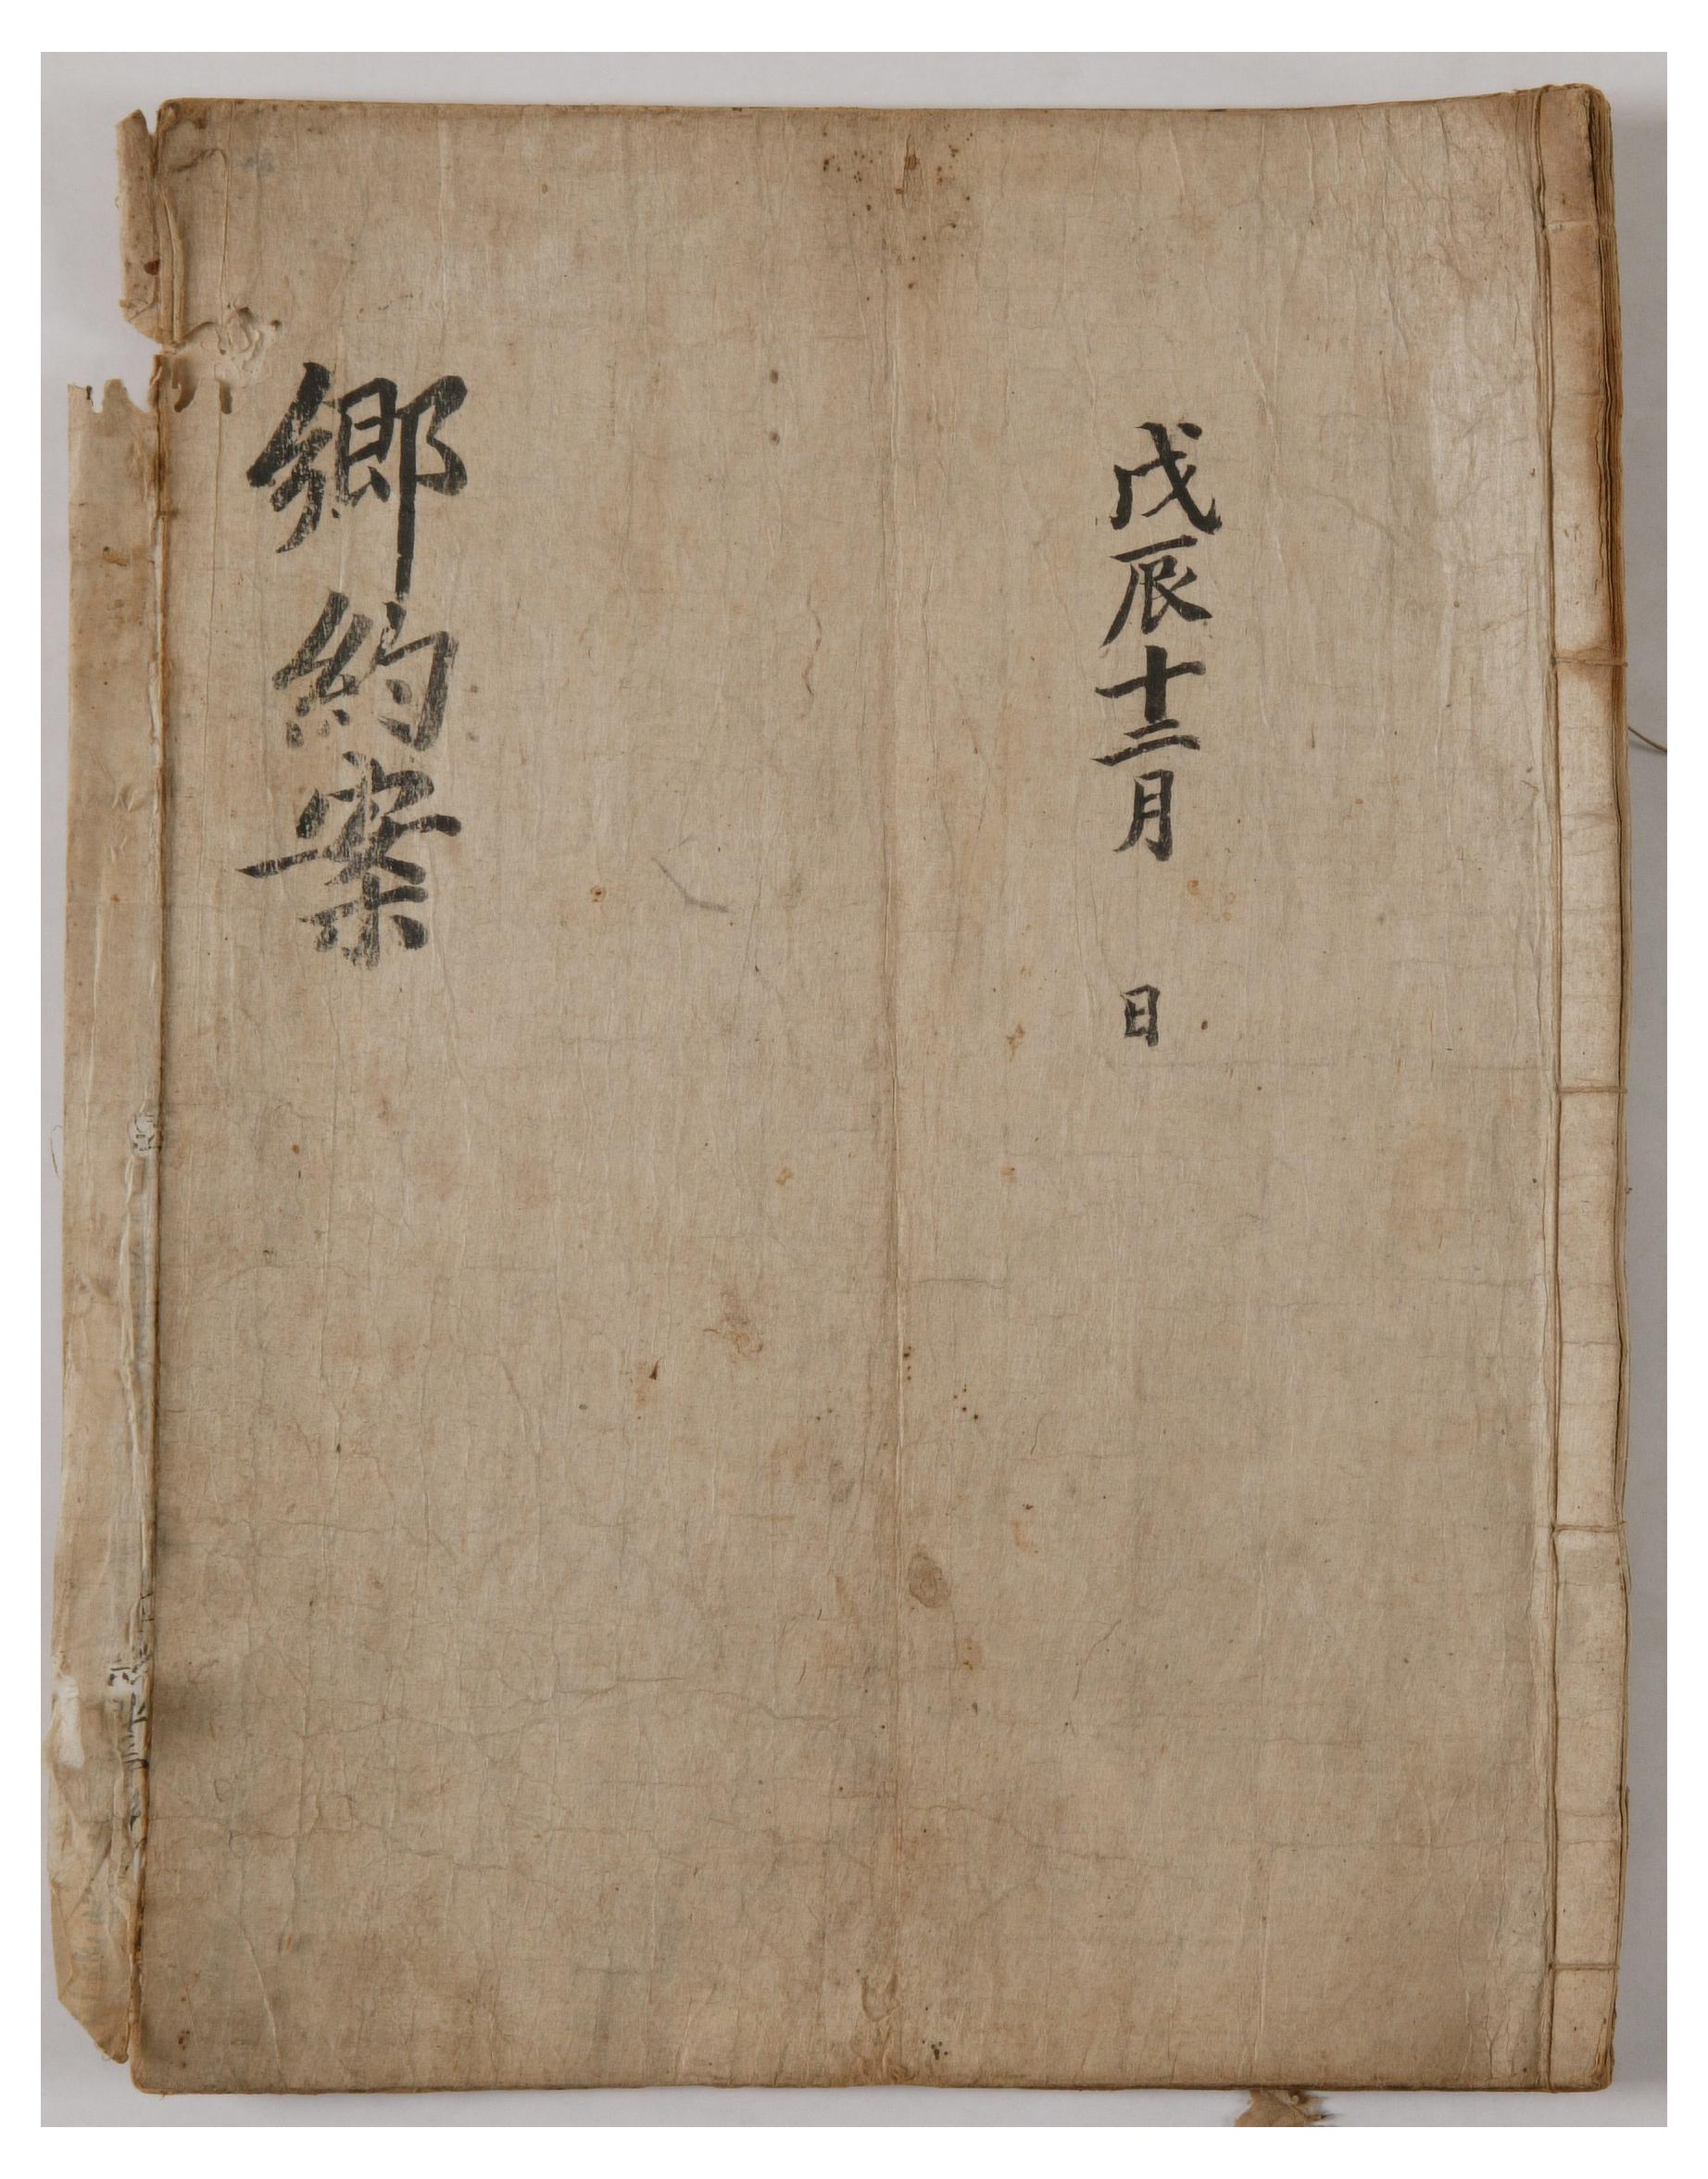 戊辰十二月 日
鄕約案